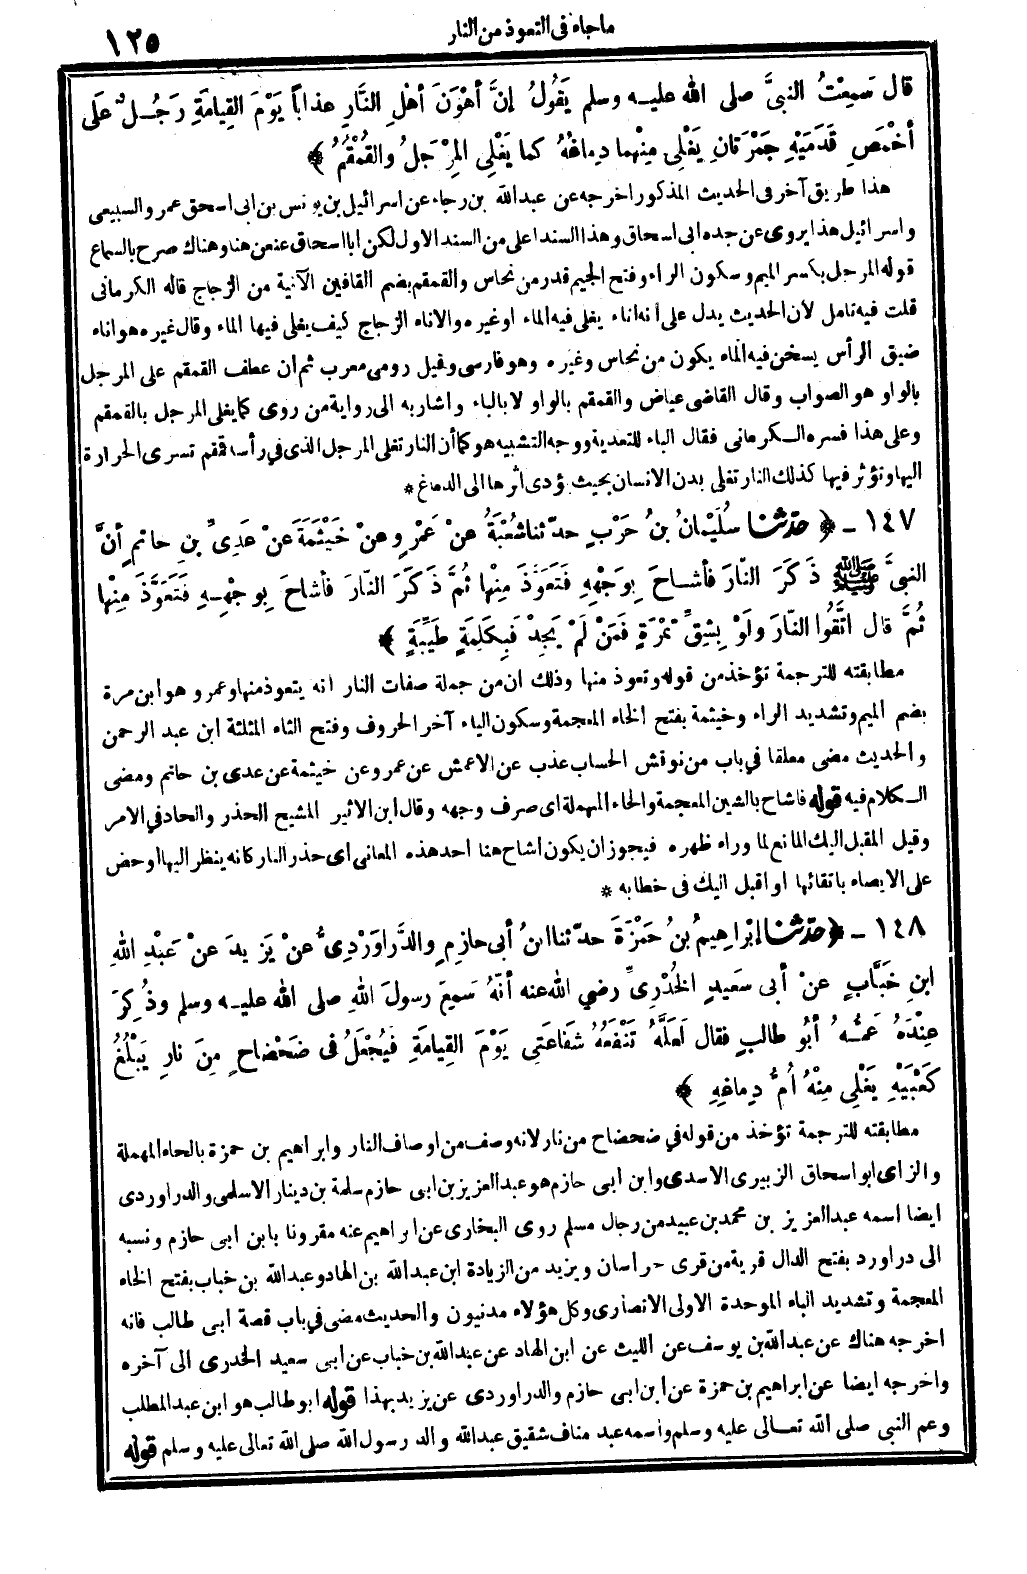 ماجاء فى التعوذ من النار
١٢٥
قال سَمِعْتُ النبىَّ صلى الله عليه وسلم يَقُولُ إنَّ أهْوَنَ أهْلِ النَّارِ عذاباً يَوْمَ القِيامَةِ رَجُلٌ عَلَى
أخْمَصِ قَدَمَيْهِ جَمْرَتانِ يَغْلِى مِنْهما دِماغُهُ كما يَغْلِى المِرْجَلُ والقُمْقُمُ ﴾
هذا طريق آخر فى الحديث المذكور اخرجه عن عبدالله بن رجاء عن اسرائيل بن يونس بن ابى اسحق عمرو السبيعى
واسرائيل هذا يروى عن جده ابى اسحاق وهذا السند اعلى من السند الاول لكن ابا اسحاق عنعن هنا وهناك صرح بالسماع
قوله المرجل بكسر الميم وسكون الراء وفتح الجيم قدر من نحاس والقمقم بضم القافين الآنية من الزجاج قاله الكرمانى
قلت فيه تامل لأن الحديث يدل على أنه اناء يغلى فيه الماء اوغيره والاناء الزجاج كيف يغلى فيها الماء وقال غيره هو اناء
ضيق الرأس يسخن فيه الماء يكون من نحاس وغيره وهو فارسى وقيل رومى معرب ثم ان عطف القمقم على المرجل
بالواو هو الصواب وقال القاضى عياض والقمقم بالواو لا بالباء واشار به الى رواية من روى كما يغلى المرجل بالقمقم
وعلى هذا فسره الكرمانى فقال الباء للتعدية ووجه التشبيه هو كما أن النار تغلى المرجل الذى فى رأسه قمقم تسرى الحرارة
اليها وتؤثر فيها كذلك النار تغلى بدن الانسان بحيث يؤدى اثرها الى الدماغ *
١٤٧ - ﴿ حدّثنا سُلَيْمانُ بنُ حَرْبٍ حدّثنا شُعْبَةُ عنْ عَمْرٍو عنْ خَيْثَمَةَ عنْ عَدِىِّ بنِ حاتِمٍ أنَّ
النبىَّ ﷺ ذَكَرَ النّارَ فأشاحَ بِوَجْهِهِ فَتَعَوَّذَ مِنْها ثُمَّ ذَكَرَ النّارَ فأشاحَ بِوَجْهِهِ فَتَعَوَّذَ مِنْها
ثُمَّ قال اتَّقُوا النّارَ ولَوْ بِشِقِّ تَمْرَةٍ فَمَنْ لَمْ يَجِدْ فَبِكَلِمَةٍ طَيِّبَةٍ ﴾
مطابقته للترجمة تؤخذ من قوله وتعوذ منها وذلك ان من جملة صفات النار انه يتعوذ منها وعمرو هو ابن مرة
بضم الميم وتشديد الراء وخيثمة بفتح الخاء المعجمة وسكون الياء آخر الحروف وفتح الثاء المثلثة ابن عبد الرحمن
والحديث مضى معلقا فى باب من نوقش الحساب عذب عن الاعمش عن عمرو عن خيثمة عن عدى بن حاتم ومضى
الكلام فيه قوله فاشاح بالشين المعجمة والحاء المهملة اى صرف وجهه وقال ابن الاثير المشيح الحذر والحاد فى الامر
وقيل المقبل اليك المانع لما وراء ظهره فيجوز ان يكون اشاح هنا احد هذه المعانى اى حذر النار كانه ينظر اليها او حض
على الايصاء باتقائها او اقبل اليك فى خطابه *
١٤٨ - ﴿ حدّثنا إبْراهِيمُ بنُ حَمْزَةَ حدّثنا ابنُ أبى حازِمٍ والدَّراوَرْدِىُّ عنْ يَزِيدَ عنْ عَبْدِ اللهِ
ابنِ خَبَّابٍ عنْ أبى سَعِيدٍ الخُدْرِىِّ رضي الله عنه أنّهُ سَمِعَ رسولَ اللهِ صلى الله عليه وسلم وذُكِرَ
عِنْدَهُ عَمُّهُ أبُو طالِبٍ فقال لَعَلَّهُ تَنْفَعُهُ شَفاعَتِى يَوْمَ القِيامَةِ فَيُجْعَلُ فى ضَحْضاحٍ مِنَ نارٍ يَبْلُغُ
كَعْبَيْهِ يَغْلِى مِنْهُ أُمُّ دِماغِهِ ﴾
مطابقته للترجمة تؤخذ من قوله فى ضحضاح من نار لانه وصف من اوصاف النار وابراهيم بن حمزة بالحاء المهملة
والزاى ابو اسحاق الزبيرى الاسدى وابن ابى حازم هو عبد العزيز بن ابى حازم سلمة بن دينار الاسلمى والدراوردى
ايضا اسمه عبد العزيز بن محمد بن عبيد من رجال مسلم روى البخارى عن ابراهيم عنه مقرونا بابن ابى حازم ونسبه
الى دراورد بفتح الدال قرية من قرى خراسان ويزيد من الزيادة ابن عبدالله بن الهاد وعبدالله بن خباب بفتح الخاء
المعجمة وتشديد الباء الموحدة الاولى الانصارى وكل هؤلاء مدنيون والحديث مضى فى باب قصة ابى طالب فانه
اخرجه هناك عن عبدالله بن يوسف عن الليث عن ابن الهاد عن عبدالله بن خباب عن ابى سعيد الخدرى الى آخره
واخرجه ايضا عن ابراهيم بن حمزة عن ابن ابى حازم والدراوردى عن يزيد بهذا قوله ابو طالب هو ابن عبد المطلب
وعم النبى صلى الله تعالى عليه وسلم واسمه عبد مناف شقيق عبدالله والد رسول الله صلى الله تعالى عليه وسلم قوله